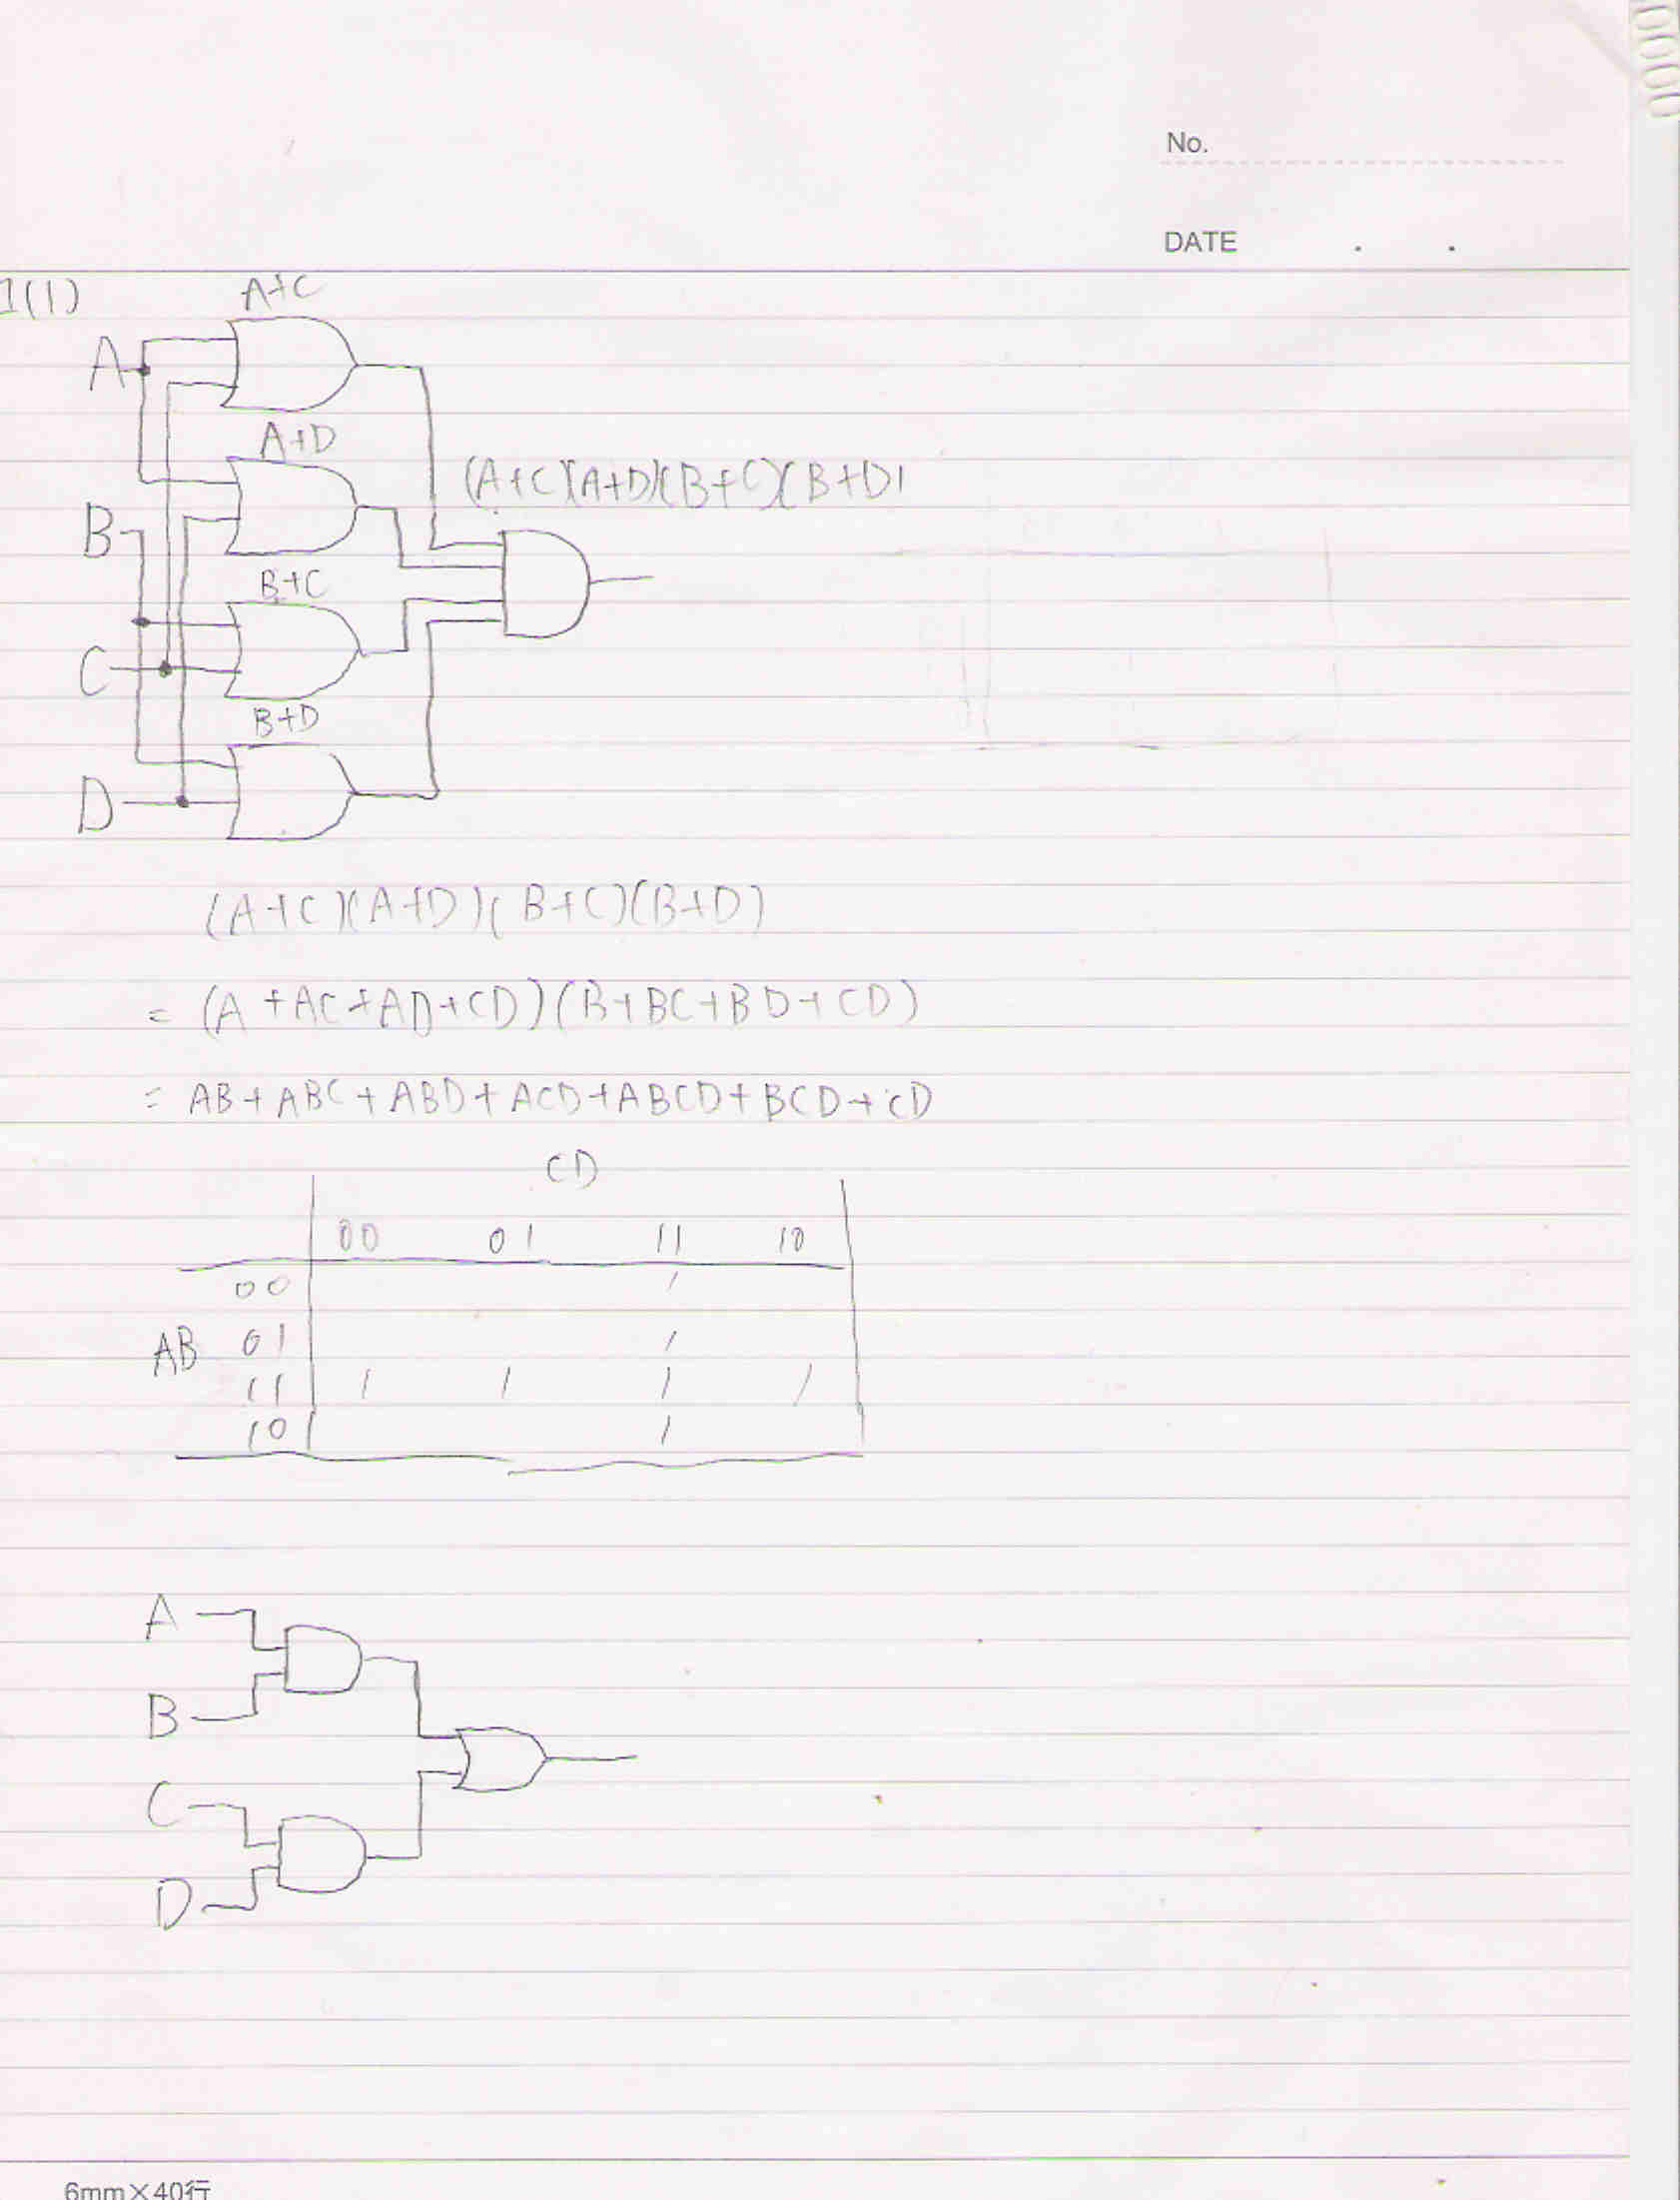 No.
DATE . .
1(1)
A+C
A
A+D
(A+C)(A+D)(B+C)(B+D)
B
B+C
C
B+D
D
(A+C)(A+D)(B+C)(B+D)
= (A+AC+AD+CD)(B+BC+BD+CD)
= AB+ABC+ABD+ACD+ABCD+BCD+CD
CD
00 01 11 10
00 1
AB 01 1
11 1 1 1 1
10 1
A
B
C
D
6mm×40行